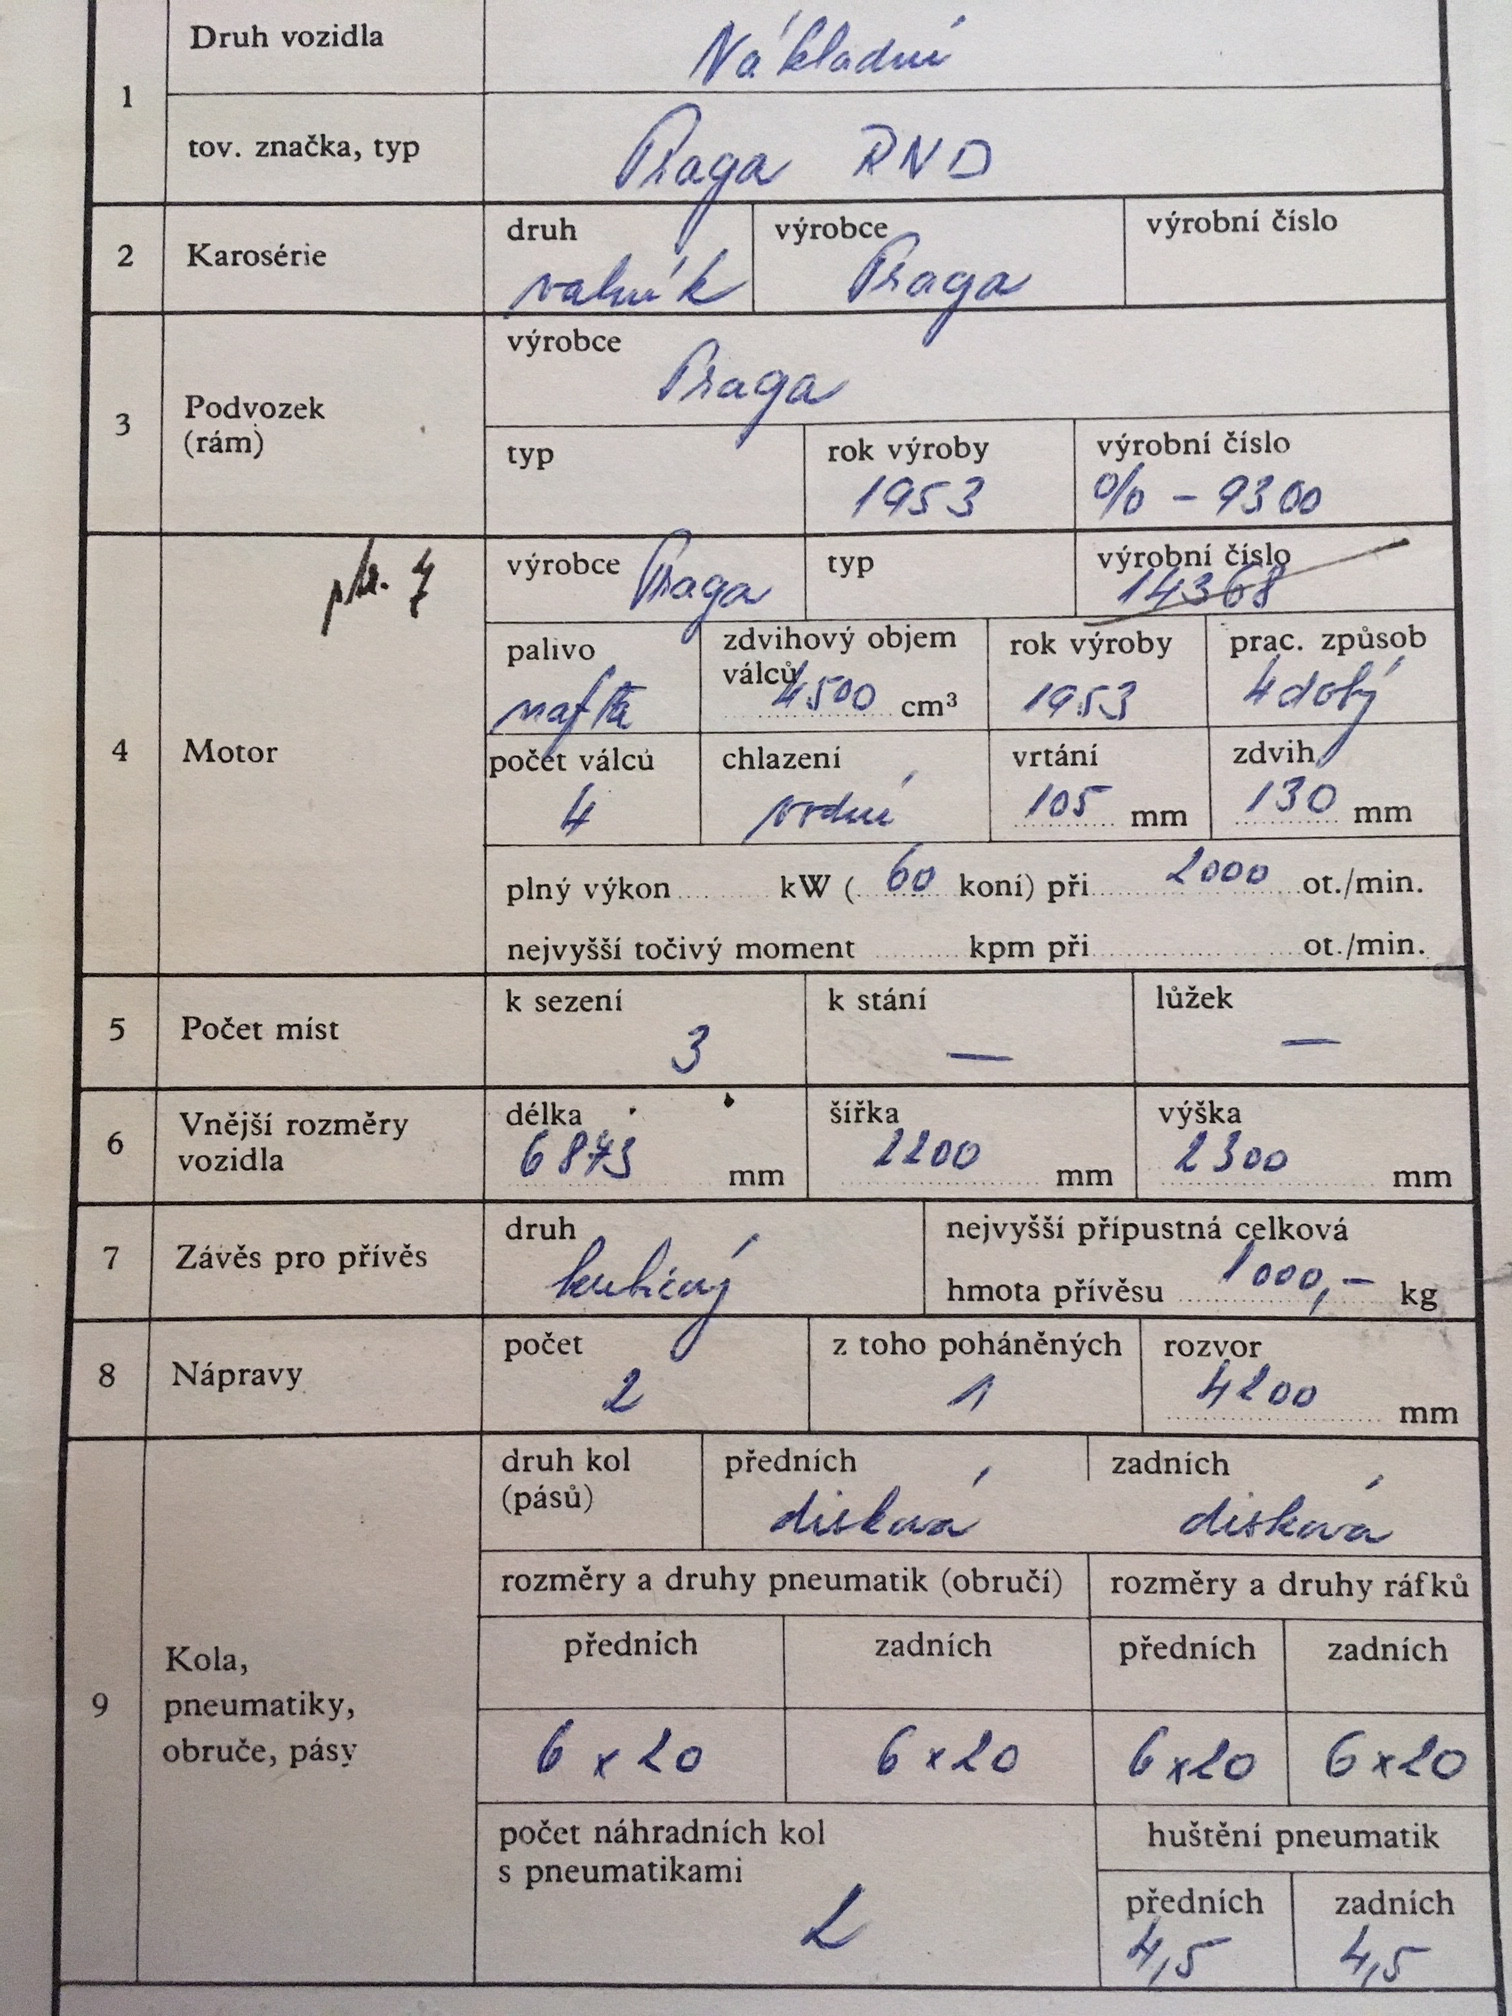 1 Druh vozidla Nákladní
tov. značka, typ Praga RND
2 Karosérie druh valník výrobce Praga výrobní číslo
3 Podvozek (rám) výrobce Praga
typ rok výroby 1953 výrobní číslo % – 9300
4 Motor výrobce Praga typ výrobní číslo 14368
palivo nafta zdvihový objem válců 4500 cm³ rok výroby 1953 prac. způsob 4dobý
počet válců 4 chlazení vodní vrtání 105 mm zdvih 130 mm
plný výkon kW ( 60 koní) při 2000 ot./min.
nejvyšší točivý moment kpm při ot./min.
5 Počet míst k sezení 3 k stání — lůžek —
6 Vnější rozměry vozidla délka 6873 mm šířka 2200 mm výška 2300 mm
7 Závěs pro přívěs druh nejvyšší přípustná celková
hmota přívěsu 1000,– kg
8 Nápravy počet 2 z toho poháněných 1 rozvor 4200 mm
9 Kola, pneumatiky, obruče, pásy
druh kol (pásů) předních disková zadních disková
rozměry a druhy pneumatik (obručí) rozměry a druhy ráfků
předních zadních předních zadních
6 x 20 6 x 20 6 x 20 6 x 20
počet náhradních kol s pneumatikami 2 huštění pneumatik
předních zadních
4,5 4,5